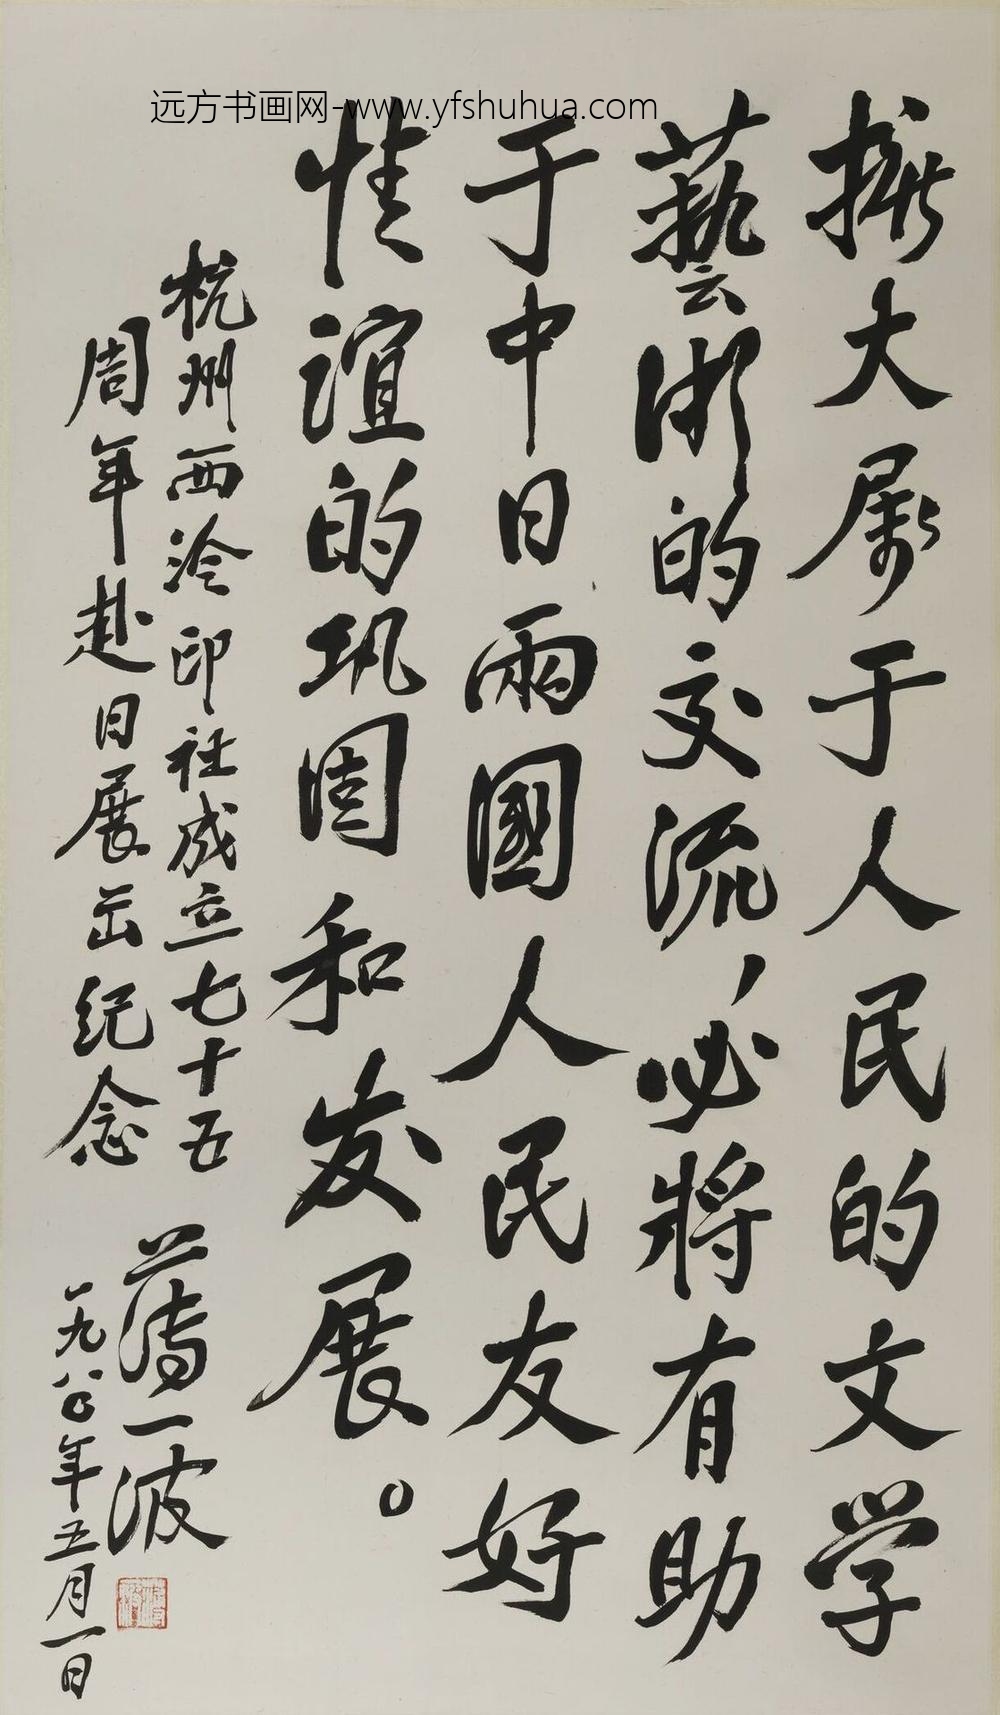 远方书画网-www.yfshuhua.com
大属于人民的文学
藝術的交流，必將有助
于中日兩國人民友好
情誼的巩固和发展。
杭州西泠印社成立七十五
周年赴日展出纪念
薄一波
一九八〇年五月一日